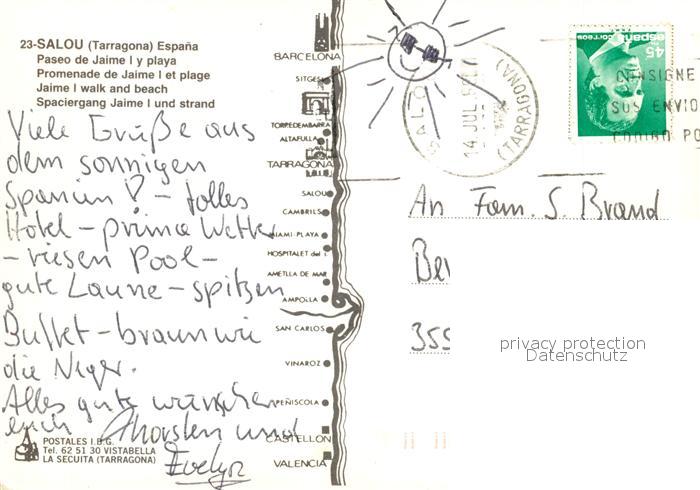 23-SALOU (Tarragona) España
Paseo de Jaime I y playa
Promenade de Jaime I et plage
Jaime I walk and beach
Spaciergang Jaime I und strand
Viele Grüße aus
dem sonnigen
Spanien! - tolles
Hotel - prima Wetter
- riesen Pool -
gute Laune - spitzen
Buffet - braun wie
die Neger.
Alles gute wünschen
euch Thorsten und
Evelyn
POSTALES I.B.G.
Tel. 62 51 30 VISTABELLA
LA SECUITA (TARRAGONA)
BARCELONA
SITGES
TORREDEMBARRA
ALTAFULLA
TARRAGONA
SALOU
CAMBRILS
MIAMI-PLAYA
HOSPITALET del I.
AMETLLA DE MAR
AMPOLLA
SAN CARLOS
VINAROZ
PEÑISCOLA
CASTELLON
VALENCIA
SALOU
14 JUL
(TARRAGONA)
45
españa
correos
CONSIGNE
SUS ENVIO
CODIGO PO
An Fam. S. Brand
Be
355
privacy protection
Datenschutz